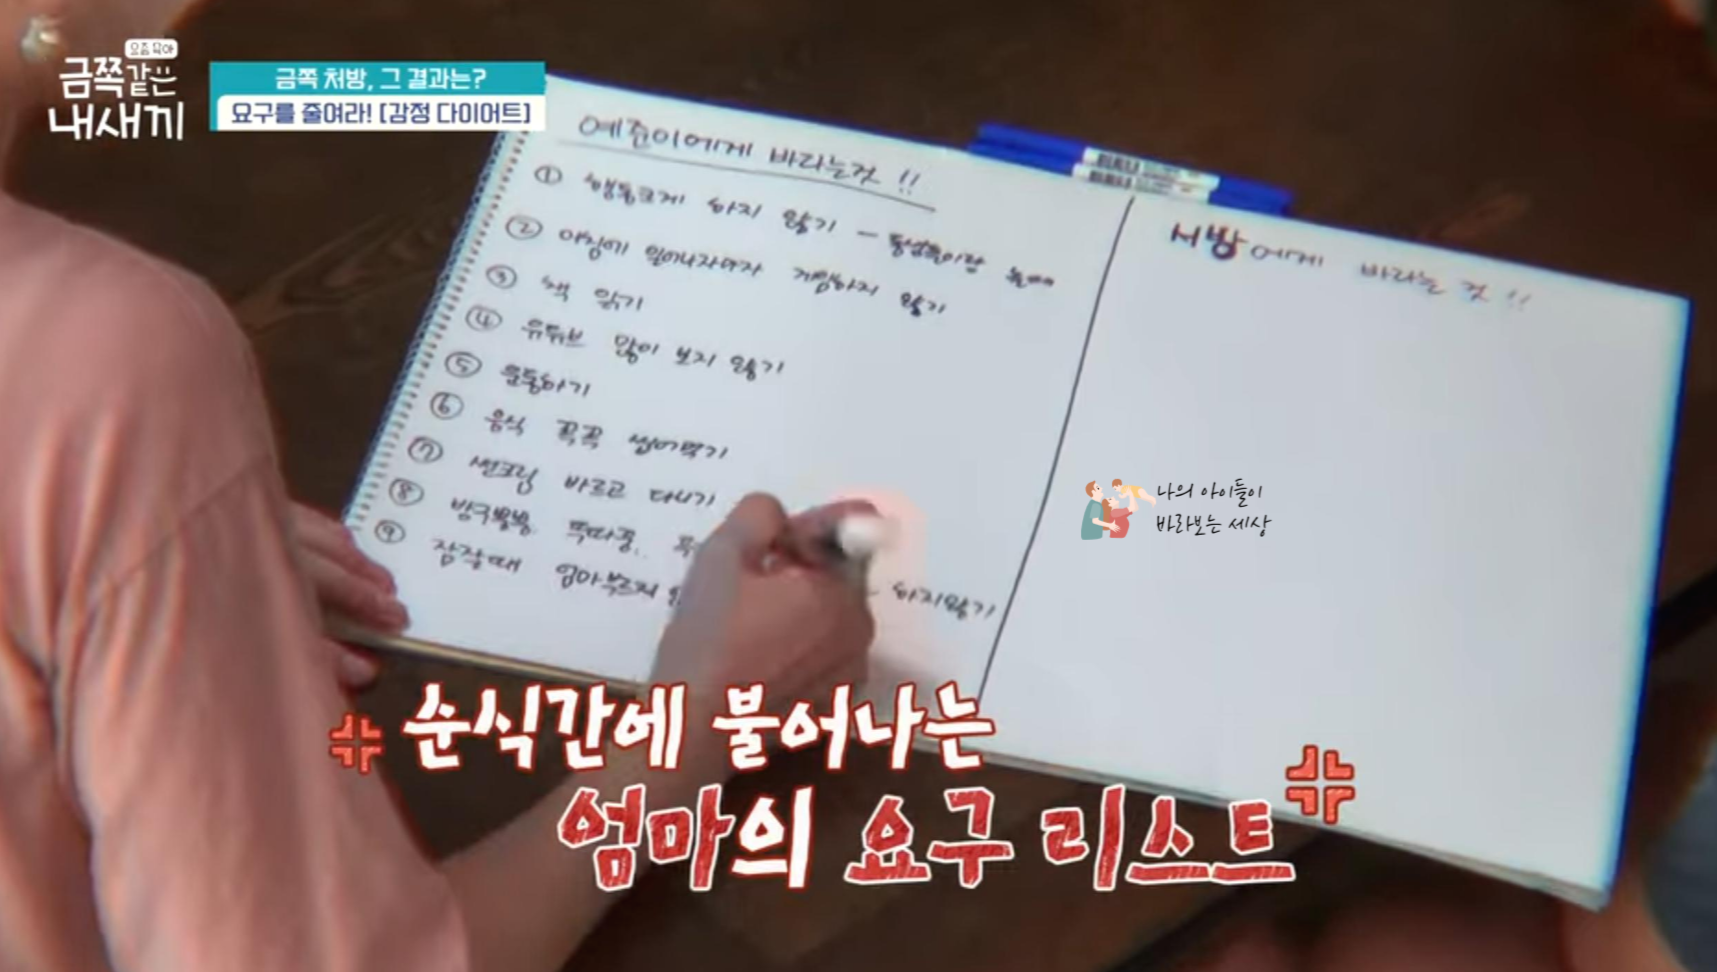 요즘 육아
금쪽같은
내새끼
금쪽 처방, 그 결과는?
요구를 줄여라! [감정 다이어트]
예준이에게 바라는것 !!
① 행동크게 하지 않기 - 동생들이랑
② 아침에 일어나자마자 게임하지 않기
③ 책 읽기
④ 유튜브 많이 보지 않기
⑤ 운동하기
⑥ 음식 꼭꼭 씹어먹기
⑦ 썬크림 바르고 다니기
⑧ 방구뿡뿡 뚝따콩.. 하지않기
⑨ 잠잘때 엄마부르지
서방에게 바라는 것 !!
나의 아이들이
바라보는 세상
순식간에 불어나는
엄마의 요구 리스트